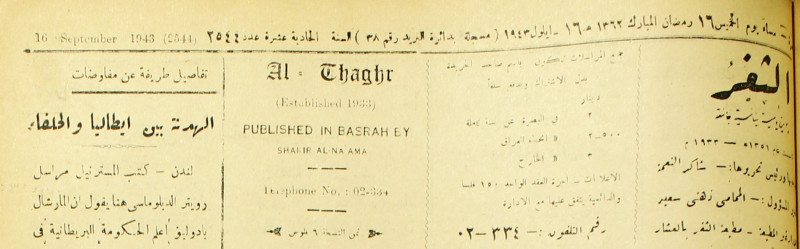 مساء يوم الخميس ١٦ رمضان المبارك ١٣٦٢ هـ - ١٦ - ايلول ١٩٤٣ ( مسجلة بدائرة البريد رقم ٣٨ ) السنة الحادية عشرة عدد ٢٥٤٤ (2544) 16 September 1943
الثغر
١٣٥١ هـ - ١٩٣٣ م
ورئيس تحريرها : - شاكر النعمة
المسؤول : - المحامي زهدي سعيد
المطبعة - مطبعة الثغر بالعشار
المراسلات تكون باسم صاحب الجريدة
بدل الاشتراك ويدفع سلفاً
دينار
٢ في البصرة عن سنة كاملة
٢-٥٠٠ » انحاء العراق
٣ » الخارج
الاعلانات - اجرة العقد الواحد ١٥٠ فلسا
والدائمية يتفق عليها مع الادارة
رقم التلفون : - ٣٣٤-٠٢
Al - Thaghr
(Established 1933)
PUBLISHED IN BASRAH BY
SHAKIR AL-NAAMA
Telephone No. : 02-334
ثمن النسخة ٦ فلوس
تفاصيل طريفة عن مفاوضات
الهدنة بين ايطاليا والحلفاء
لندن - كتب المستر نيل مراسل
رويتر الدبلوماسي هنا يقول ان المارشال
بادوليو أعلم الحكومة البريطانية في